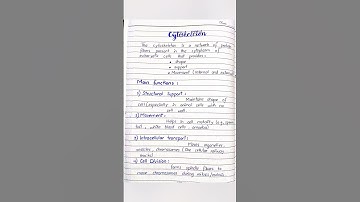 Cytoskeleton
The cytoskeleton is a network of protein
fibers present in the cytoplasm of
eukaryotic cells that provides:
• shape
• support
• Movement (internal and external)
Main functions:
1) Structural Support:
Maintain shape of
cell (especially in animal cells with no
cell wall.
2) Movement:
Helps in cell motility (e.g., sperm
tail, white blood cells, amoeba)
3) Intracellular transport:
Moves organelles,
vesicles, chromosomes (like cellular
4) Cell Division:
Forms spindle fibers to
move chromosomes during mitosis/meiosis.